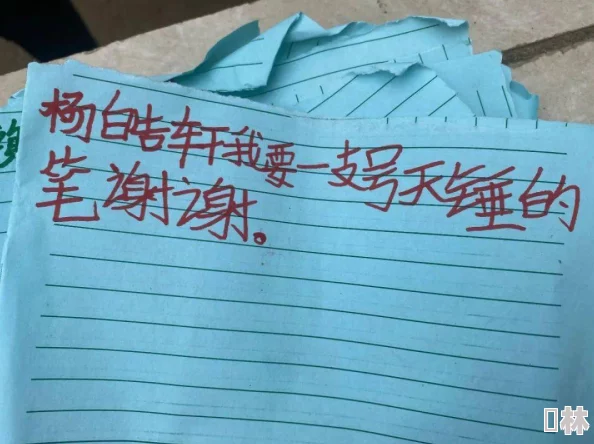 杨皓轩我要一支号天锤的
笔谢谢。
林